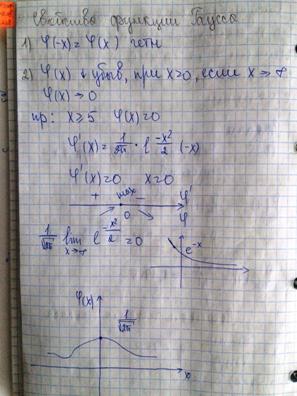 свойства функции Гаусса
1) φ(-x) = φ(x) четн
2) φ(x) ↓ убыв, при x>0, если x → ∞
φ(x) → 0
пр: x ≥ 5 φ(x) = 0
φ'(x) = 1/√2π · e^(-x²/2) (-x)
φ'(x) = 0 x = 0
+ max − φ'
0 φ
1/√2π lim x→∞ e^(-x²/2) = 0
e^-x
φ(x)
1/√2π
x